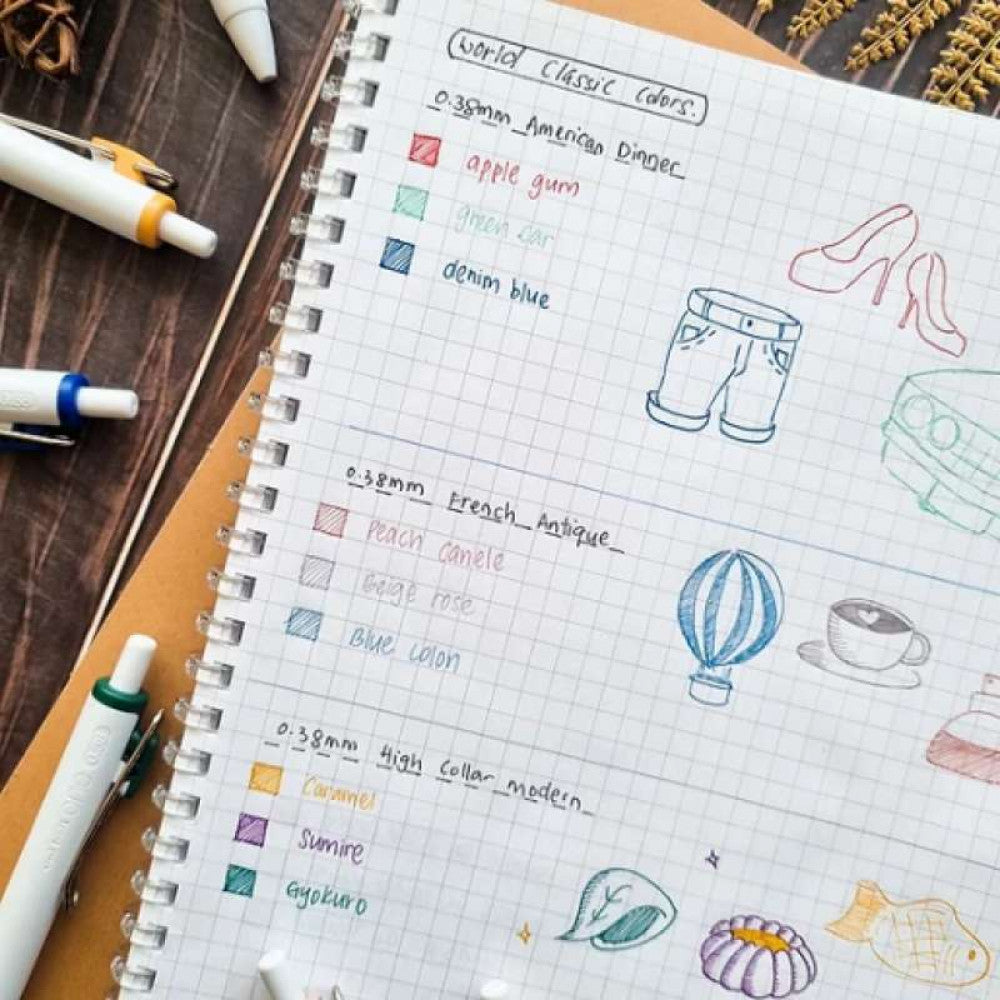 World Classic Colors.
0.38mm American Dinner
apple gum
green car
denim blue
0.38mm French Antique
Peach canele
Beige rose
Blue colon
0.38mm High Collar modern
Caramel
Sumire
Gyokuro